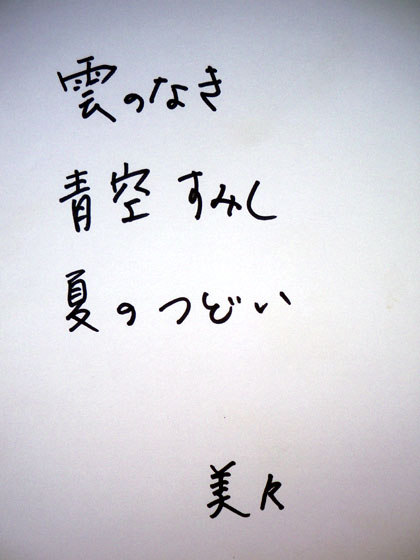 雲のなき
青空すみし
夏のつどい
美々